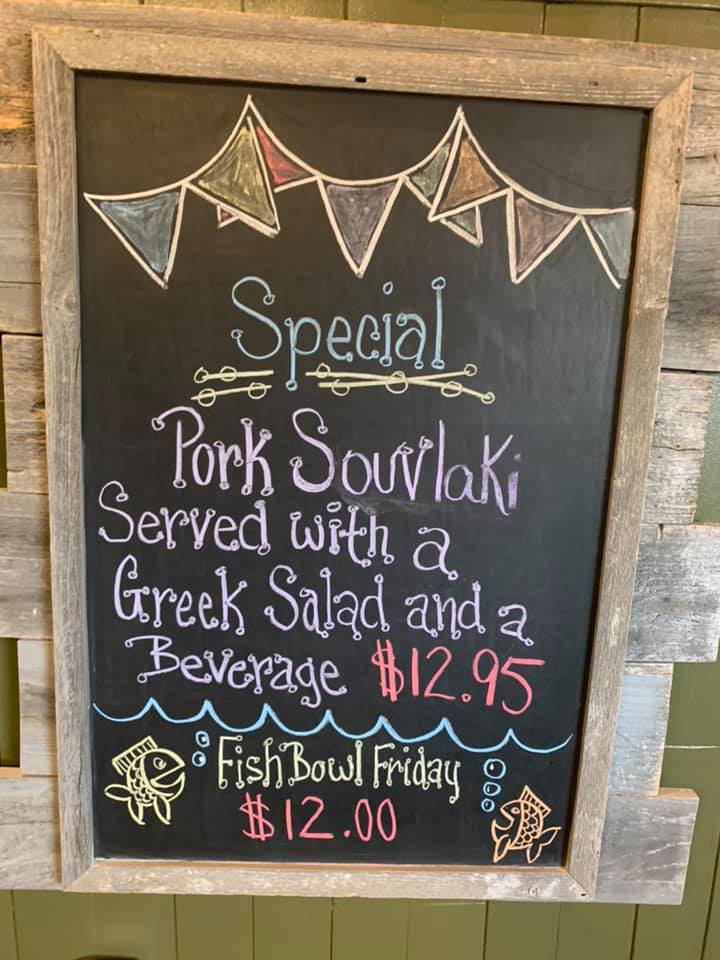 Special
Pork Souvlaki
Served with a
Greek Salad and a
Beverage $12.95
Fish Bowl Friday
$12.00